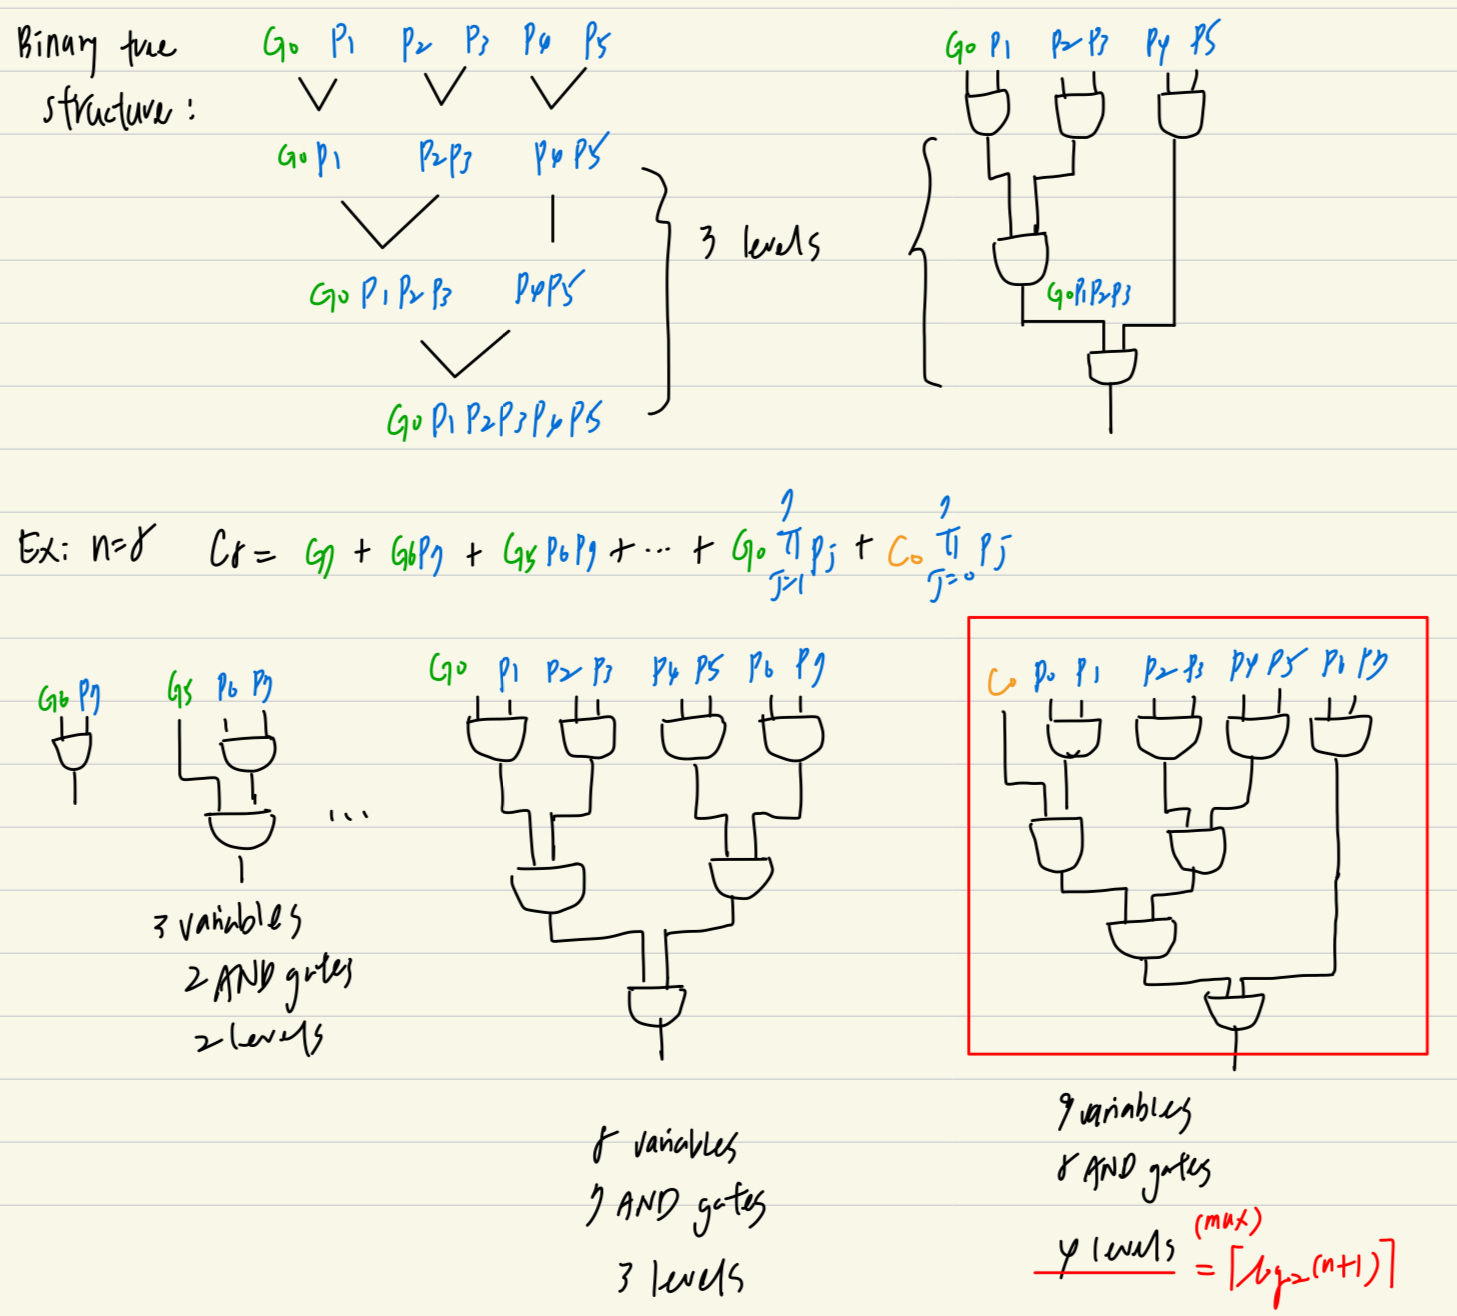 Binary tree structure:
G0 P1 P2 P3 P4 P5
G0P1 P2P3 P4P5
G0P1P2P3 P4P5
G0P1P2P3P4P5
3 levels
G0 P1 P2 P3 P4 P5
G0P1P2P3
Ex: n=8 C8 = G7 + G6P7 + G5P6P7 + ... + G0 7∏j=1 Pj + C0 7∏j=0 Pj
G6 P7
G5 P6 P7
...
3 variables
2 AND gates
2 levels
G0 P1 P2 P3 P4 P5 P6 P7
8 variables
7 AND gates
3 levels
C0 P0 P1 P2 P3 P4 P5 P6 P7
9 variables
8 AND gates
4 levels (max) = ⌈log2(n+1)⌉